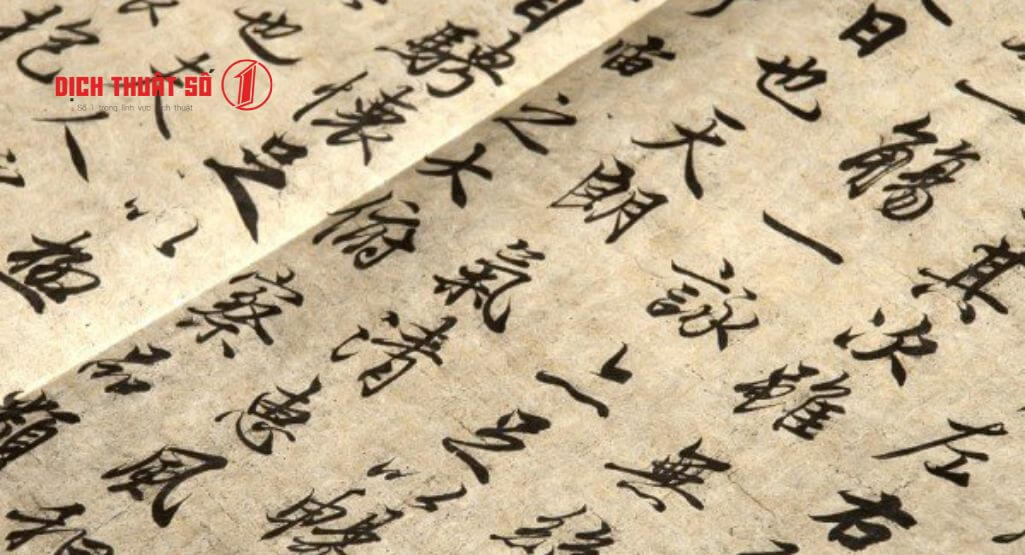 DỊCH THUẬT SỐ 1
Số 1 trong lĩnh vực dịch thuật
左右
其次雖無絲
一觴一詠亦足以暢
日也天朗氣清惠風和
宙之大俯察品類
騁懷足以極
也夫人
抱